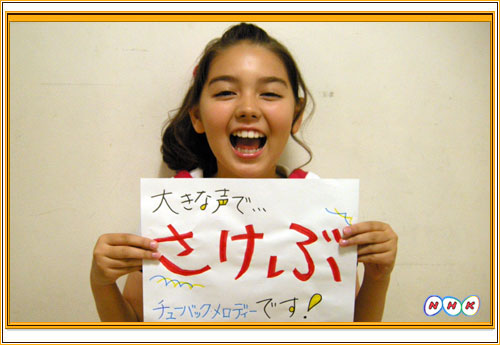 大きな声で...
さけぶ
チューバックメロディーです!
NHK